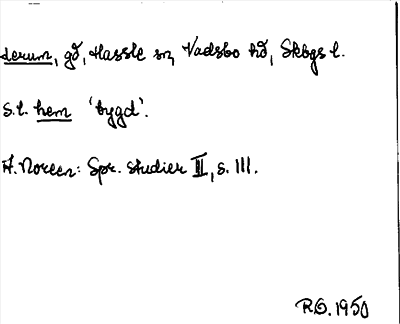 derum, gd, Hassle sn, Vadsbo hd, Skbgs l.
s.l. hem 'bygd'.
A. Noreen: Spr. studier III, s. 111.
R.O. 1950